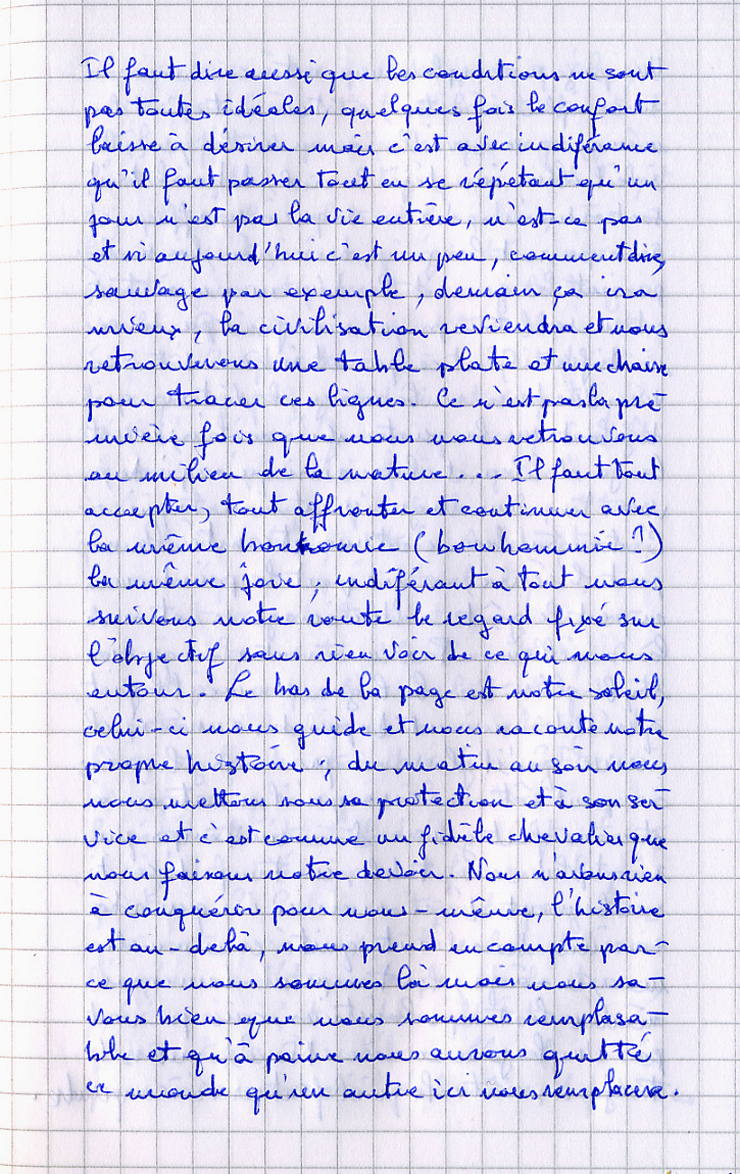 Il faut dire aussi que les conditions ne sont
pas toutes idéales, quelques fois le confort
laisse à désirer mais c'est avec indiférance
qu'il faut passer tout en se répétant qu'un
jour n'est pas la vie entière, n'est-ce pas
et si aujourd'hui c'est un peu, comment dire,
sauvage par exemple, demain ça ira
mieux, la civilisation reviendra et nous
retrouverons une table plate et une chaise
pour tracer ces lignes. Ce n'est pas la pre-
mière fois que nous nous retrouvons
au milieu de la nature... Il faut tout
accepter, tout affronter et continuer avec
la même bonhomie (bonhommie?)
la même joie, indiférant à tout nous
suivons notre route le regard fixé sur
l'objectif sans rien voir de ce qui nous
entour. Le bas de la page est notre soleil,
celui-ci nous guide et nous raconte notre
propre histoire ; du matin au soir nous
nous mettons sous sa protection et à son ser-
vice et c'est comme un fidèle chevalier que
nous faisons notre devoir. Nous n'avons rien
à conquérir pour nous-même, l'histoire
est au-delà, nous prend en compte par-
ce que nous sommes là mais nous sa-
vons bien que nous sommes remplasa-
ble et qu'à peine nous aurons quitté
ce monde qu'un autre ici nous remplacera.